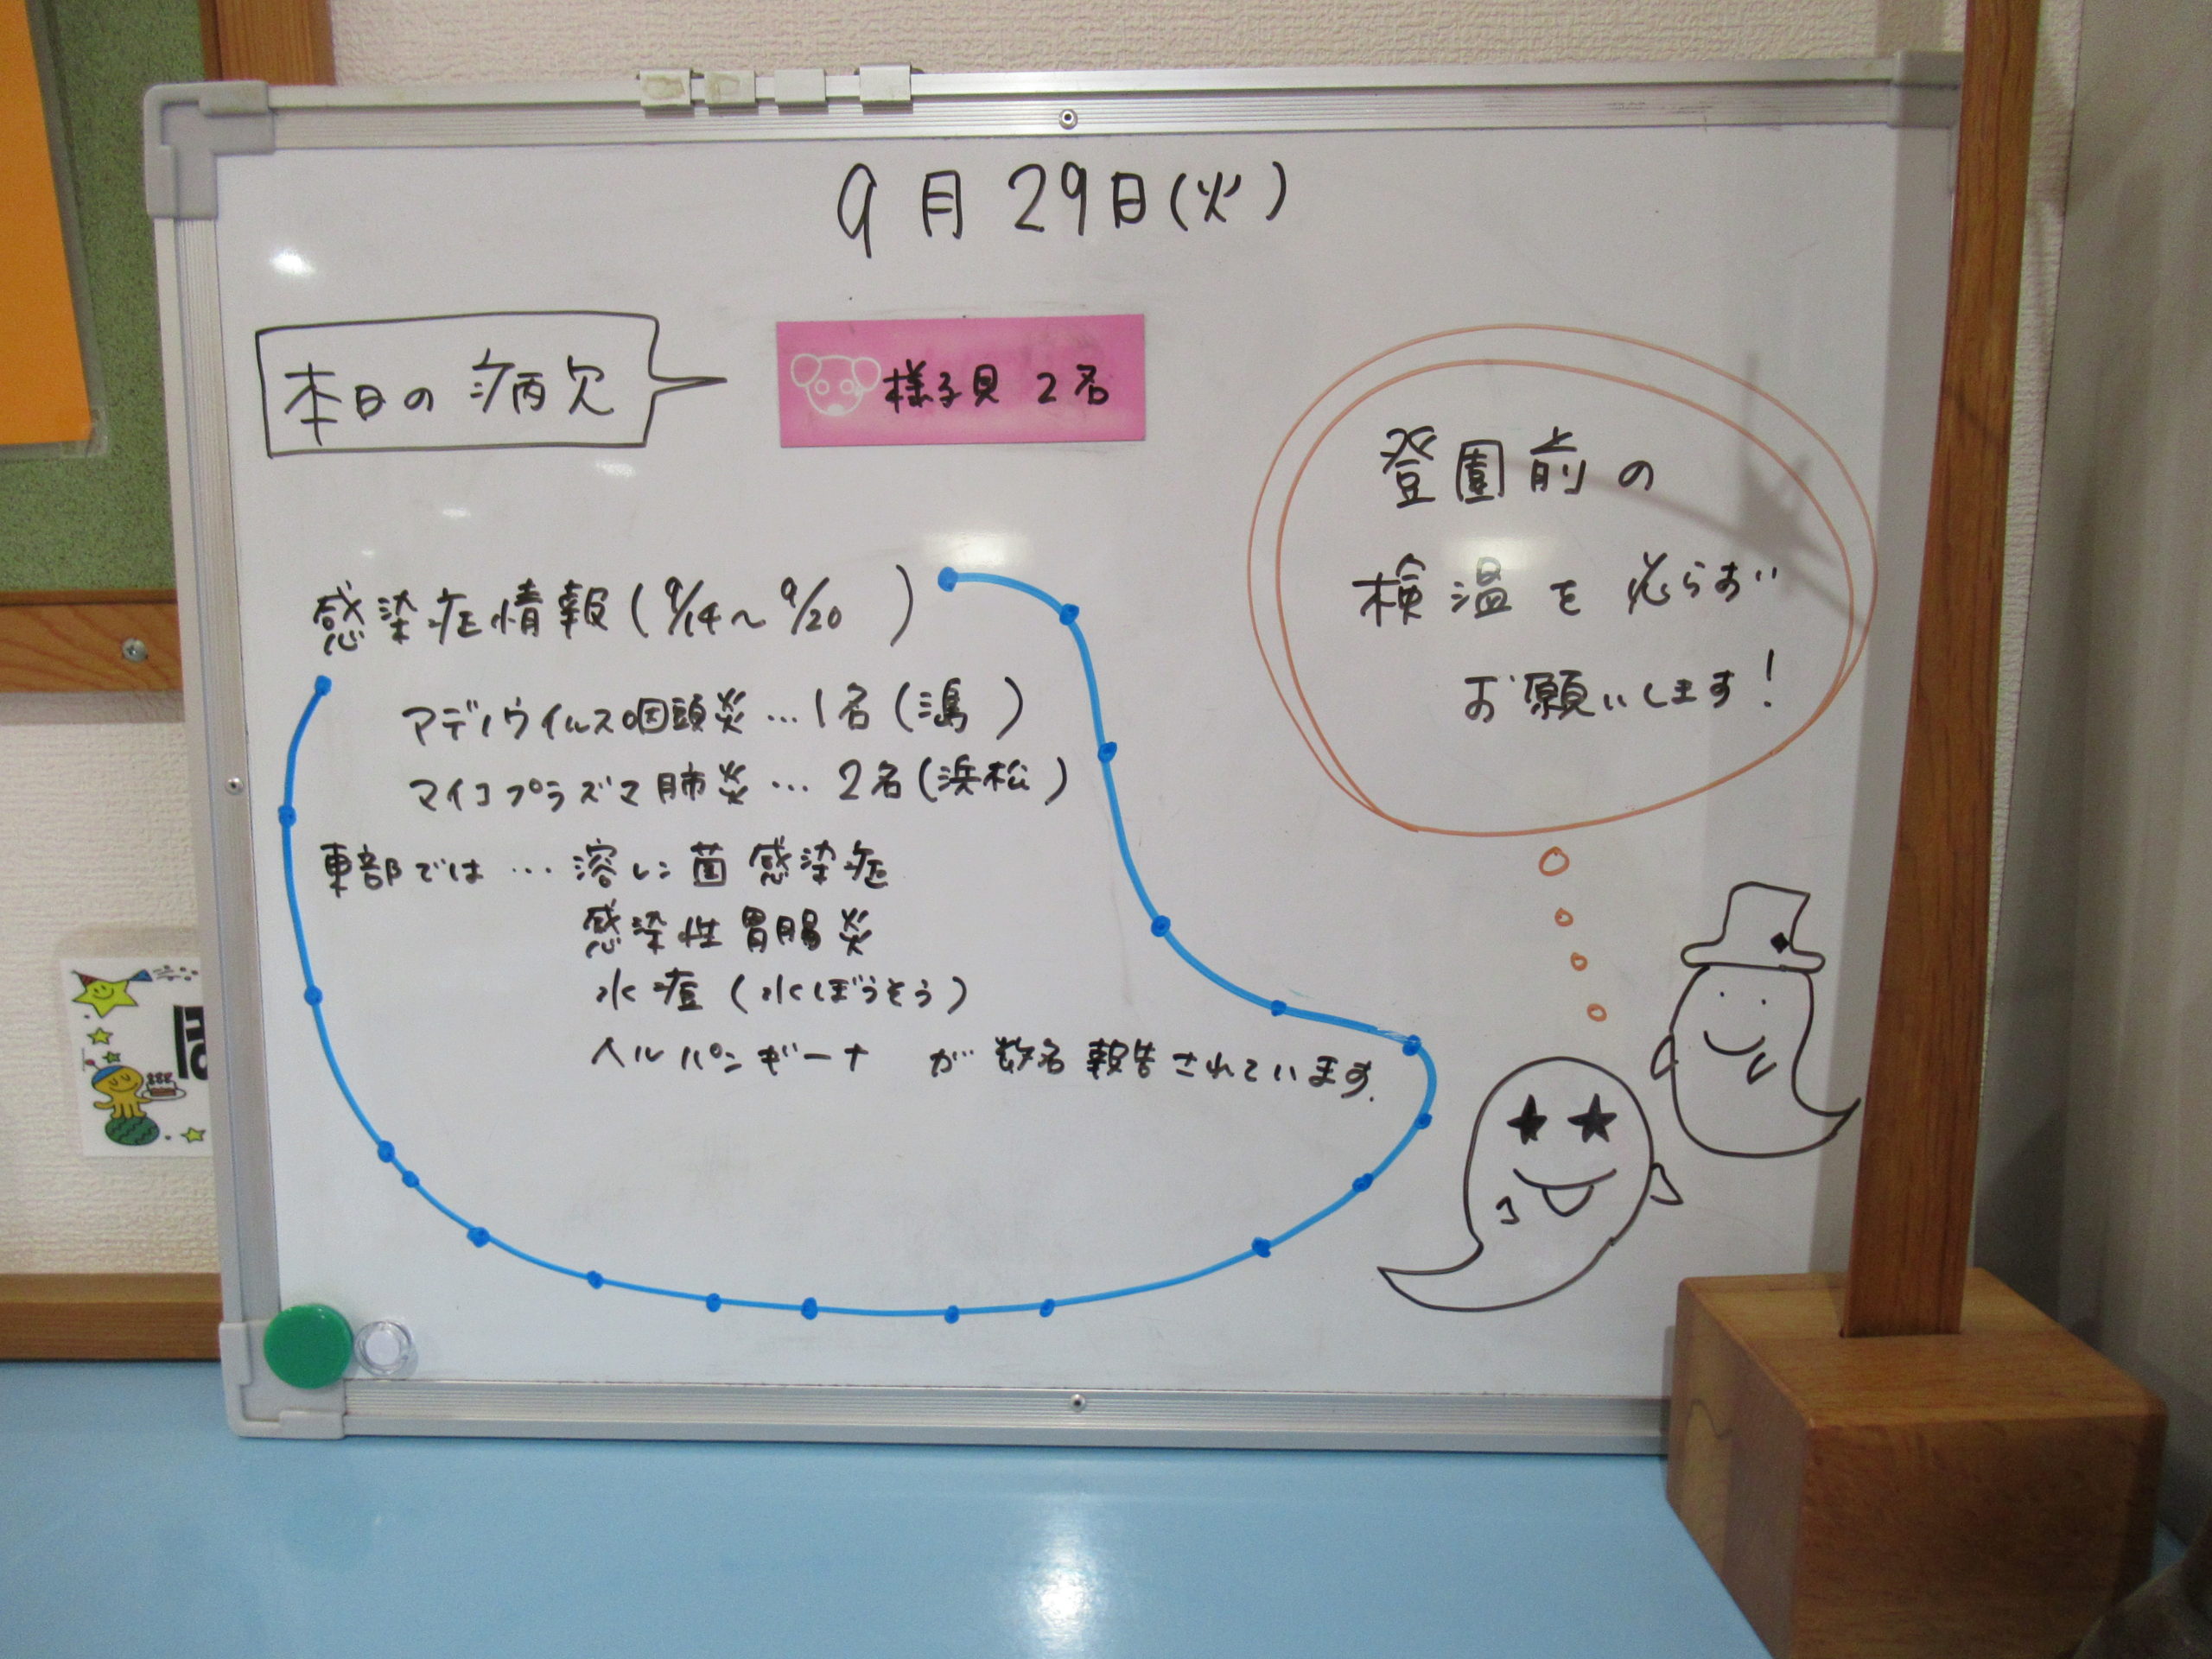 9月29日(火)
本日の病欠
様子見 2名
登園前の
検温を必らず
お願いします!
感染症情報(9/14~9/20)
アデノウイルス咽頭炎…1名(潟)
マイコプラズマ肺炎…2名(浜松)
東部では…溶レン菌感染症
感染性胃腸炎
水痘(水ぼうそう)
ヘルパンギーナ が数名報告されています.